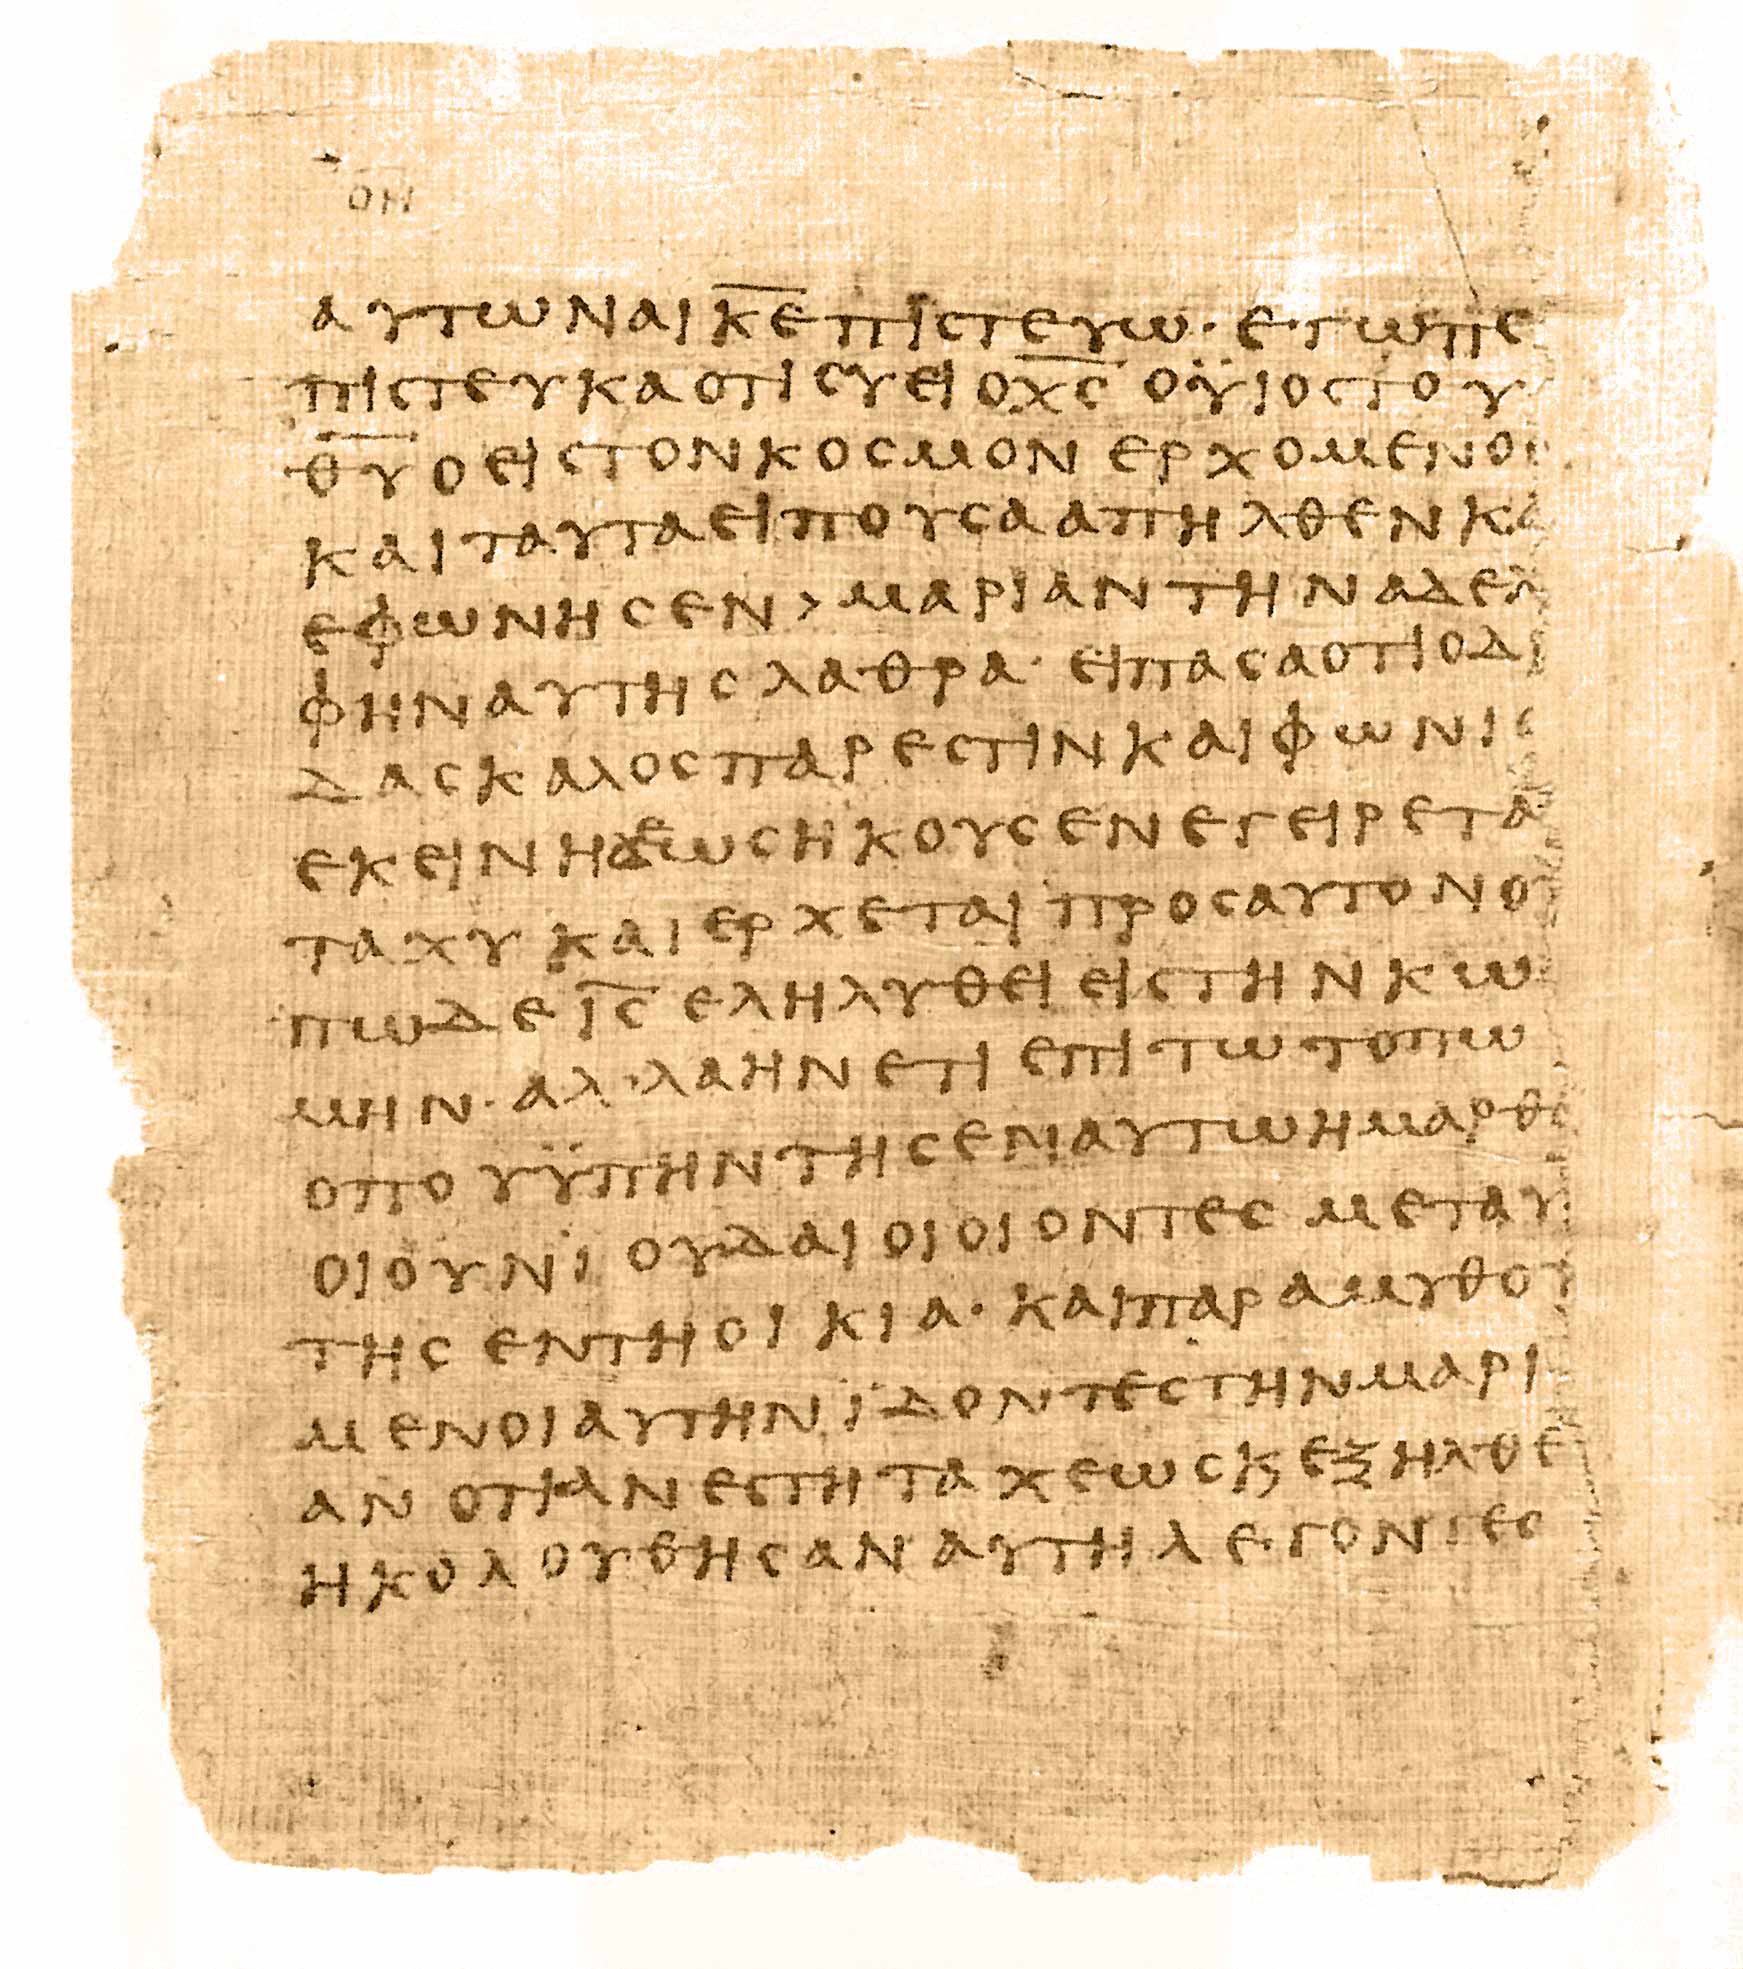 ΟΗ
ΑΥΤΩΝΑΙΚ̅Ε̅ΠΙΣΤΕΥΩ· Ε·ΓΩΠΣ
ΠΙΣΤΕΥΚΑΟΤΙΣΥΕΙΟΧ̅Σ̅ ΟΫΙΟΣΤΟΥ
Θ̅Υ̅ΟΕΙΣΤΟΝΚΟΣΜΟΝ ΕΡΧΟΜΕΝΟ
ΚΑΙΤΑΥΤΑΕΙΠΟΥΣΑΑΠΗΛΘΕΝΚΑ
ΕΦΩΝΗΣΕΝ›ΜΑΡΙΑΝΤΗΝΑΔΕΛ
ΦΗΝΑΥΤΗΣΛΑΘΡΑ· ΕΙΠΑΣΑΟΤΙΟΔΙ
ΔΑΣΚΑΛΟΣΠΑΡΕΣΤΙΝΚΑΙΦΩΝΙΣ
ΕΚΕΙΝΗΔΕΩΣΗΚΟΥΣΕΝΕΓΕΙΡΕΤΑ
ΤΑΧΥ ΚΑΙ ΕΡΧΕΤΑΙ ΠΡΟΣΑΥΤΟΝΟΥ
ΠΩΔΕΙ̅Σ̅ ΕΛΗΛΥΘΕΙ ΕΙΣΤΗΝΚΩ
ΜΗΝ· ΑΛ·ΛΑΗΝΕΤΙ ΕΠΙΤΩΤΟΠΩ
ΟΠΟΥΫΠΗΝΤΗΣΕΝΑΥΤΩΗΜΑΡΘΑ
ΟΙΟΥΝΪΟΥΔΑΙΟΙΟΙΟΝΤΕΣ ΜΕΤΑΥ
ΤΗΣ ΕΝΤΗΟΙΚΙΑ· ΚΑΙΠΑΡΑΜΥΘΟΥ
ΜΕΝΟΙΑΥΤΗΝΪΔΟΝΤΕΣΤΗΝΜΑΡΙ
ΑΝ ΟΤΙΑΝΕΣΤΗΤΑΧΕΩΣϏΕΞΗΛΘΕ
ΗΚΟΛΟΥΘΗΣΑΝΑΥΤΗΛΕ·ΓΟΝΤΕΣ